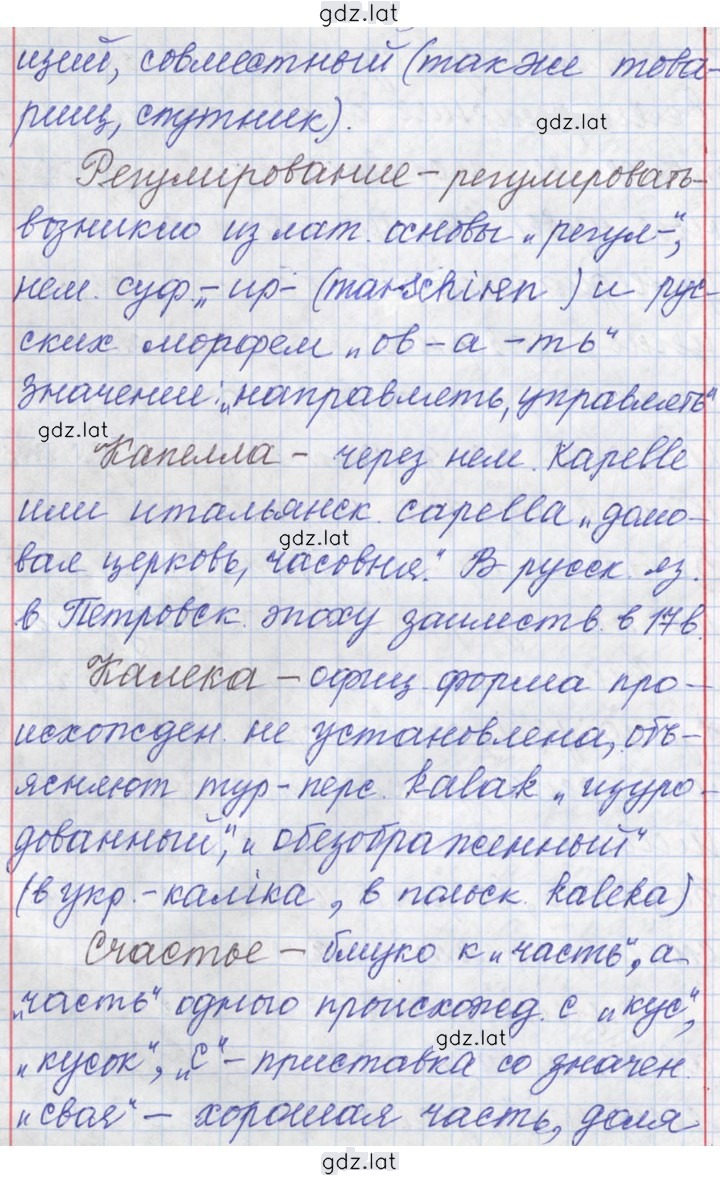 gdz.lat
щий, совместный (также това-
рищ, спутник).
gdz.lat
Регулирование – регулировать-
возникло из лат. основы „регул-",
нем. суф. „- ир- (marschiren ) и рус-
ских морфем „ов-а-ть"
значении: „направлять, управлять"
gdz.lat
Капелла - через нем. Kapelle
или итальянск. capella „домо-
gdz.lat
вая церковь, часовня". В русск. яз.
в Петровск. эпоху заимств. в 17 в.
Калека – офиц. форма про-
исхожден. не установлена, объ-
ясняют тур-перс. kalak „изуро-
дованный", „обезображенный"
(в укр.-каліка, в польск. kaleka)
Счастье – близко к „часть", а
„часть" одного происхожд. с „кус",
gdz.lat
„кусок", „с"- приставка со значен.
„свая" – хорошая часть, доля
gdz.lat